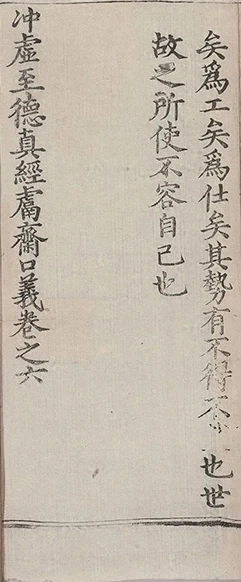 矣為工矣為仕矣其勢有不得不 也世
故之所使不容自已也
冲虛至德真經鬳齋口義卷之六